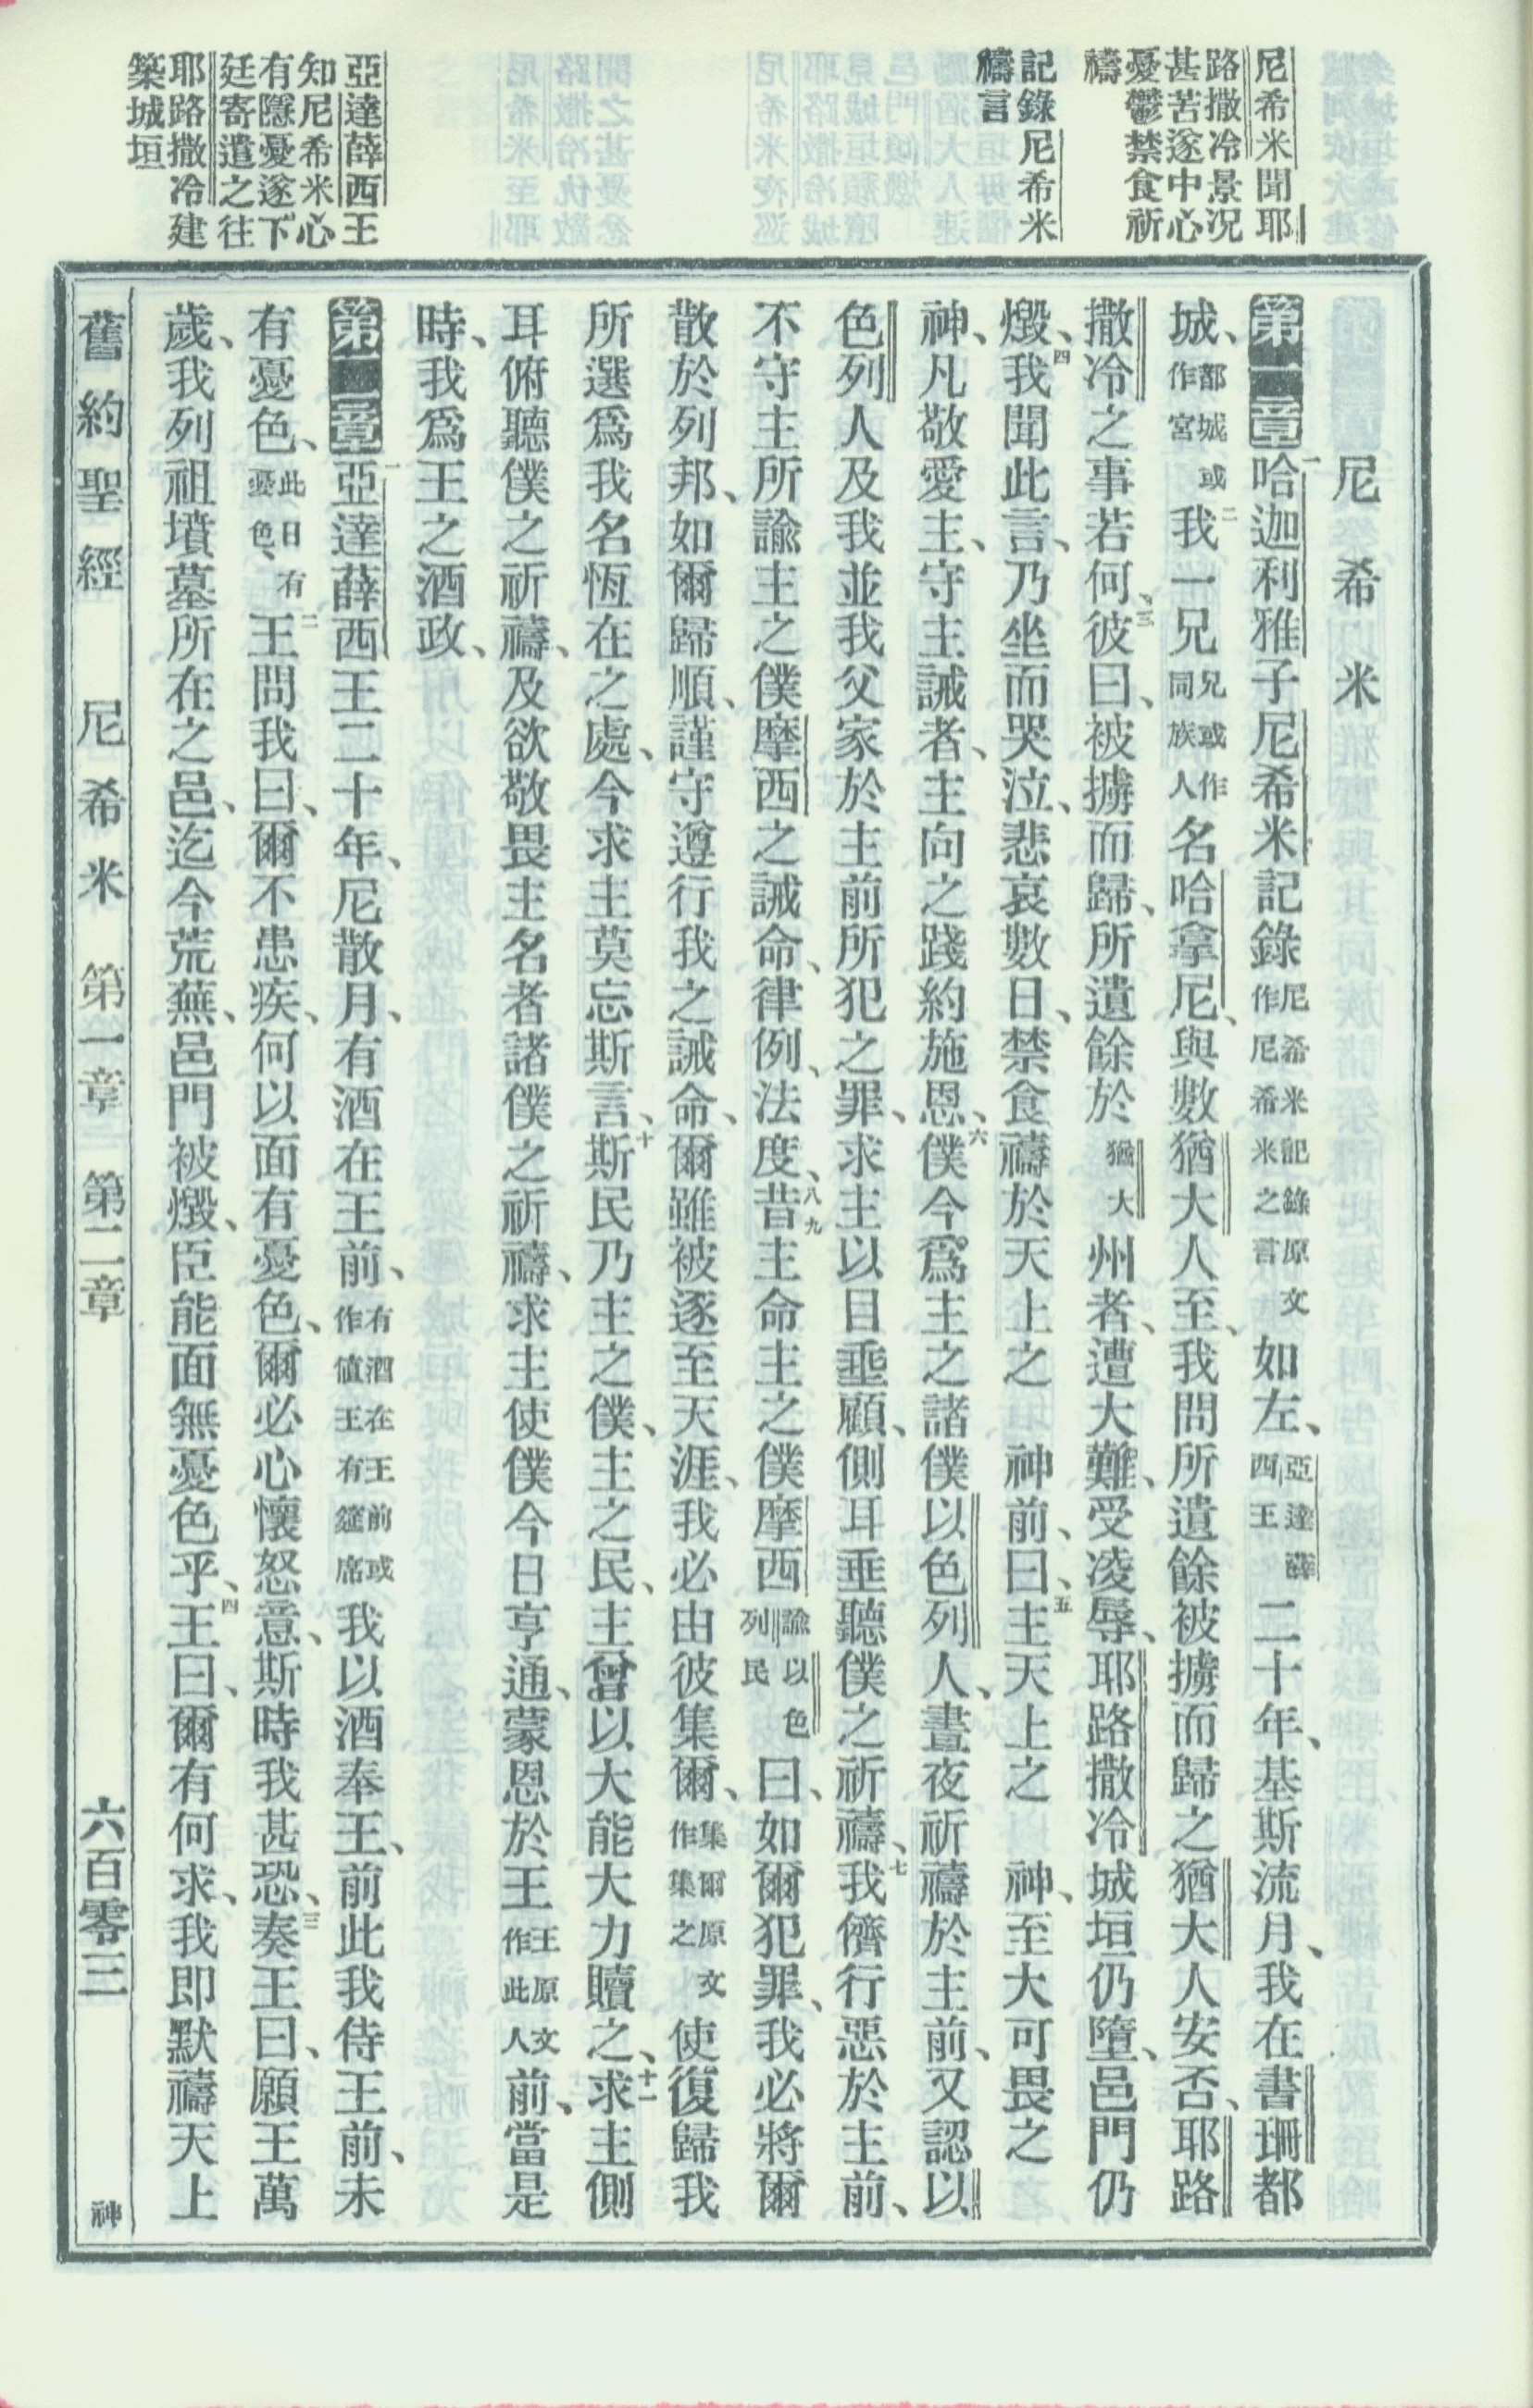 尼希米聞耶
路撒冷景况
甚苦遂中心
憂鬱禁食祈
禱
記錄尼希米
禱言
亞達薛西王
知尼希米心
有隱憂遂下
廷寄遣之往
耶路撒冷建
築城垣
尼希米
第一章一哈迦利雅子尼希米記錄尼希米記錄原文作尼希米之言如左、亞達薛西王二十年、基斯流月、我在書珊都
城、都城或作宮二我一兄兄或作同族人名哈拿尼、與數猶大人至、我問所遺餘被擄而歸之猶大人安否、耶路
撒冷之事若何、三彼曰、被擄而歸、所遺餘於猶大州者、遭大難、受凌辱、耶路撒冷城垣仍墮、邑門仍
燬、四我聞此言、乃坐而哭泣、悲哀數日、禁食禱於天上之 神前、曰、五主天上之 神、至大可畏之
神、凡敬愛主、守主誡者、主向之踐約施恩、六僕今爲主之諸僕以色列人、晝夜祈禱於主前、又認以
色列人及我並我父家於主前所犯之罪、求主以目垂顧、側耳垂聽僕之祈禱、七我儕行惡於主前、
不守主所諭主之僕摩西之誡命、律例、法度、八九昔主命主之僕摩西諭以色列民曰、如爾犯罪、我必將爾
散於列邦、如爾歸順、謹守遵行我之誡命、爾雖被逐至天涯、我必由彼集爾、集爾原文作集之使復歸我
所選爲我名恆在之處、今求主莫忘斯言、十斯民乃主之僕、主之民、主曾以大能大力贖之、十一求主側
耳俯聽僕之祈禱、及欲敬畏主名者諸僕之祈禱、求主使僕今日亨通、蒙恩於王王原文作此人前、當是
時、我爲王之酒政、
第二章一亞達薛西王二十年、尼散月、有酒在王前、有酒在王前或作値王有筵席我以酒奉王、前此我侍王前、未
有憂色、此日有憂色、二王問我曰、爾不患疾、何以面有憂色、爾必心懷怒意、斯時我甚恐、三奏王曰、願王萬
歲、我列祖墳墓所在之邑、迄今荒蕪、邑門被燬、臣能面無憂色乎、四王曰、爾有何求、我即默禱天上
舊約聖經 尼希米 第一章 第二章 六百零三 神